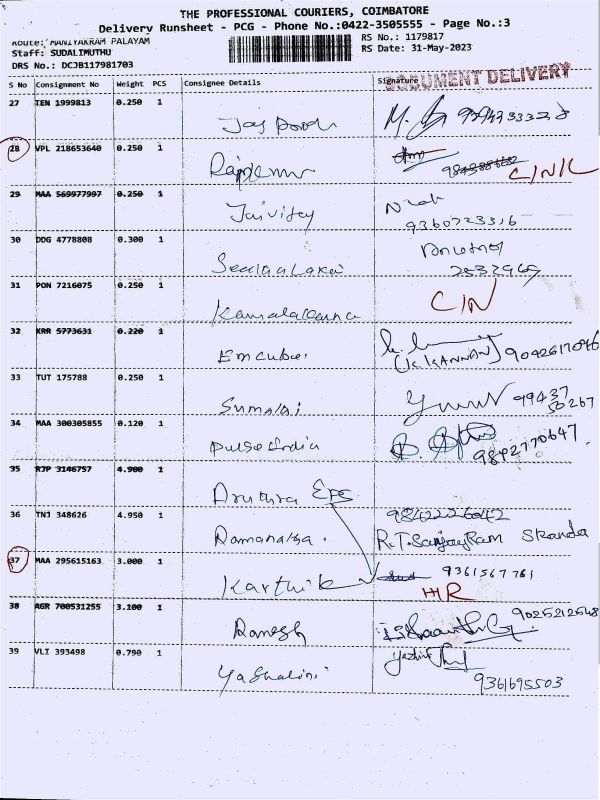 THE PROFESSIONAL COURIERS, COIMBATORE
Delivery Runsheet - PCG - Phone No.:0422-3505555 - Page No.:3
Route: MANIYAKRAM PALAYAM
RS No.: 1179817
Staff: SUDALIMUTHU
RS Date: 31-May-2023
DRS No.: DCJB117981703
DOCUMENT DELIVERY
S No Consignment No Weight PCS Consignee Details Signature
27 TEN 1999813 0.250 1
28 VPL 218653640 0.250 1
C/N/L
29 MAA 569977997 0.250 1
Jaivijay
9360723316
30 DDG 4778808 0.300 1
2532969
31 PON 7216075 0.250 1
C/N
32 KRR 5773631 0.220 1
Emcube
(K.KANNAN) 9042617046
33 TUT 175788 0.250 1
Sumathi
99437
50267
34 MAA 300305855 0.120 1
Pulse India
9842770647
35 RJP 3146757 4.900 1
Aruthra EPS
36 TNJ 348626 4.950 1
9842226042
Ramanatha.
R.T. Sanjay Ram Skanda
37 MAA 295615163 3.000 1
Karthik
9361567761
HR
38 AGR 700531255 3.100 1
Ramesh
9025212548
39 VLI 393498 0.790 1
Yashalini
9361695503